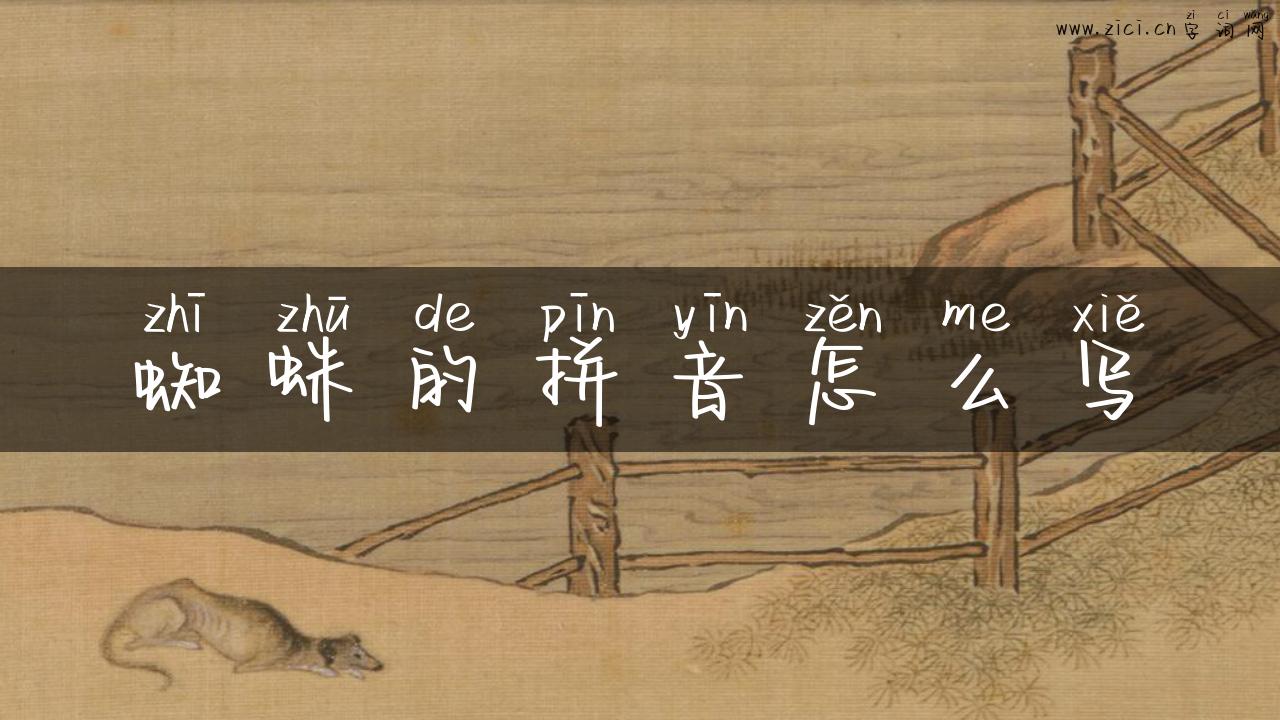 zi ci wang
www.zici.cn 字词网
zhī zhū de pīn yīn zěn me xiě
蜘蛛的拼音怎么写